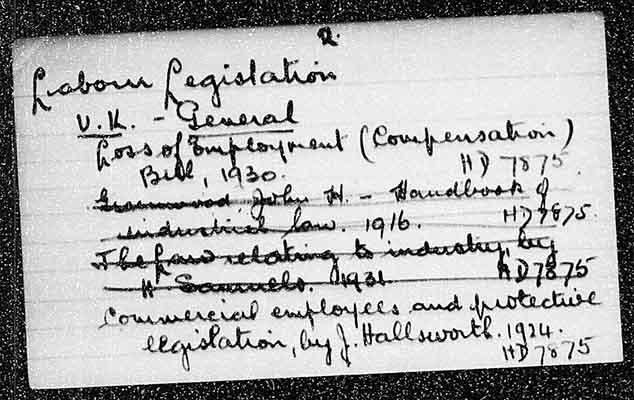 2.
Labour Legislation
U.K. - General
Loss of Employment (Compensation)
Bill, 1930. HD 7875
Greenwood John H. - Handbook of
industrial law. 1916. HD7875.
The Law relating to industry, by
H Samuels. 1931. HD7875
Commercial employees and protective
legislation, by J. Hallsworth. 1924.
HD 7875